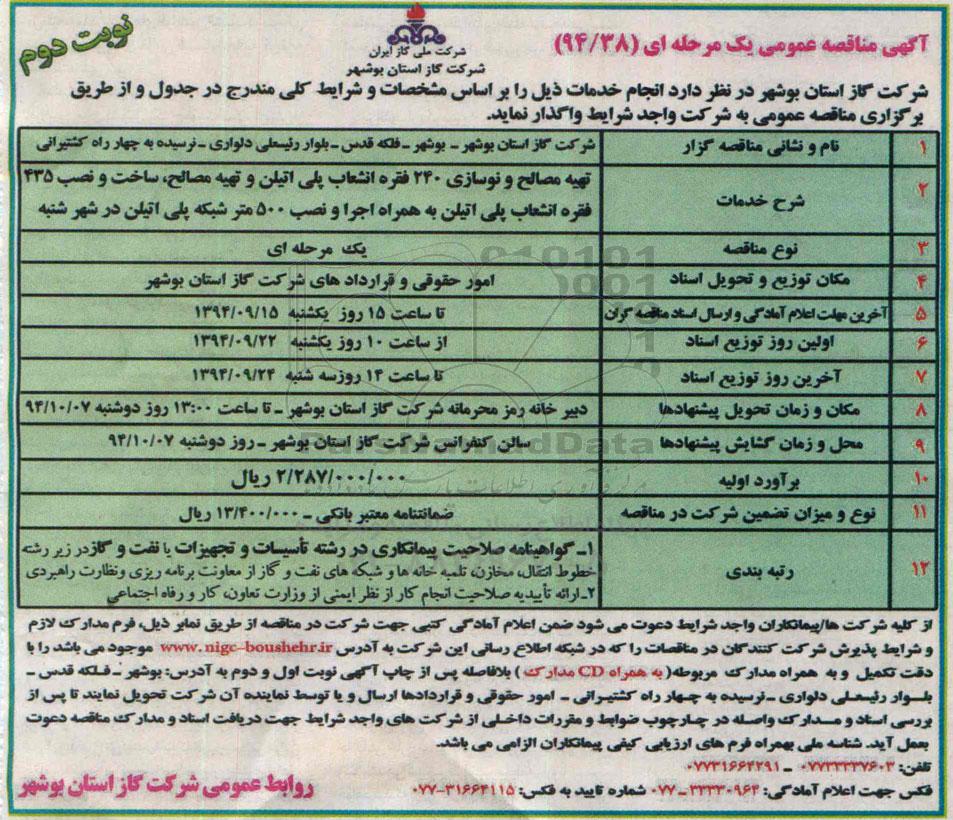 نوبت دوم
شرکت ملی گاز ایران
شرکت گاز استان بوشهر
آگهی مناقصه عمومی یک مرحله ای (۹۴/۳۸)
شرکت گاز استان بوشهر در نظر دارد انجام خدمات ذیل را بر اساس مشخصات و شرایط کلی مندرج در جدول و از طریق
برگزاری مناقصه عمومی به شرکت واجد شرایط واگذار نماید.
۱ نام و نشانی مناقصه گزار شرکت گاز استان بوشهر ـ بوشهر ـ فلکه قدس ـ بلوار رئیسعلی دلواری ـ نرسیده به چهار راه کشتیرانی
۲ شرح خدمات تهیه مصالح و نوسازی ۲۴۰ فقره انشعاب پلی اتیلن و تهیه مصالح، ساخت و نصب ۴۳۵
فقره انشعاب پلی اتیلن به همراه اجرا و نصب ۵۰۰ متر شبکه پلی اتیلن در شهر شنبه
۳ نوع مناقصه یک مرحله ای
۴ مکان توزیع و تحویل اسناد امور حقوقی و قرارداد های شرکت گاز استان بوشهر
۵ آخرین مهلت اعلام آمادگی و ارسال اسناد مناقصه گران تا ساعت ۱۵ روز یکشنبه ۱۳۹۴/۰۹/۱۵
۶ اولین روز توزیع اسناد از ساعت ۱۰ روز یکشنبه ۱۳۹۴/۰۹/۲۲
۷ آخرین روز توزیع اسناد تا ساعت ۱۴ روزسه شنبه ۱۳۹۴/۰۹/۲۴
۸ مکان و زمان تحویل پیشنهادها دبیر خانه رمز محرمانه شرکت گاز استان بوشهر ـ تا ساعت ۱۳:۰۰ روز دوشنبه ۹۴/۱۰/۰۷
۹ محل و زمان گشایش پیشنهادها سالن کنفرانس شرکت گاز استان بوشهر ـ روز دوشنبه ۹۴/۱۰/۰۷
۱۰ برآورد اولیه ۲/۲۸۷/۰۰۰/۰۰۰ ریال
۱۱ نوع و میزان تضمین شرکت در مناقصه ضمانتنامه معتبر بانکی ـ ۱۳/۴۰۰/۰۰۰ ریال
۱۲ رتبه بندی ۱ـ گواهینامه صلاحیت پیمانکاری در رشته تأسیسات و تجهیزات یا نفت و گازدر زیر رشته
خطوط انتقال، مخازن، تلمبه خانه ها و شبکه های نفت و گاز از معاونت برنامه ریزی ونظارت راهبردی
۲ـ ارائه تأییدیه صلاحیت انجام کار از نظر ایمنی از وزارت تعاون، کار و رفاه اجتماعی
از کلیه شرکت ها/پیمانکاران واجد شرایط دعوت می شود ضمن اعلام آمادگی کتبی جهت شرکت در مناقصه از طریق نمابر ذیل، فرم مدارک لازم
و شرایط پذیرش شرکت کنندگان در مناقصات را که در شبکه اطلاع رسانی این شرکت به آدرس www. nigc-boushehr.ir موجودمی باشد را با
دقت تکمیل و به همراه مدارک مربوطه( به همراه CD مدارک ) بلافاصله پس از چاپ آگهی نوبت اول و دوم به آدرس: بوشهر ـ فـلکه قدس ـ
بلـوار رئیسعـلی دلواری ـ نرسیده به چهـار راه کشتیـرانی ـ امور حقوقی و قراردادها ارسال و یا توسط نماینده آن شرکت تحویل نمایند تا پس از
بررسی اسناد و مـدارک واصله در چـارچوب ضوابط و مقررات داخلـی از شرکت های واجد شرایط جهت دریافت اسناد و مدارک مناقصه دعوت
بعمل آید. شناسه ملی بهمراه فرم های ارزیابی کیفی پیمانکاران الزامی می باشد.
تلفن: ۰۷۷۳۳۳۳۷۶۰۳ ـ ۰۷۷۳۱۶۶۴۲۹۱
فکس جهت اعلام آمادگی: ۳۳۳۳۰۹۶۴ـ۰۷۷ شماره تایید به فکس: ۳۱۶۶۴۱۱۵-۰۷۷
روابط عمومی شرکت گاز استان بوشهر
ParsNamadData